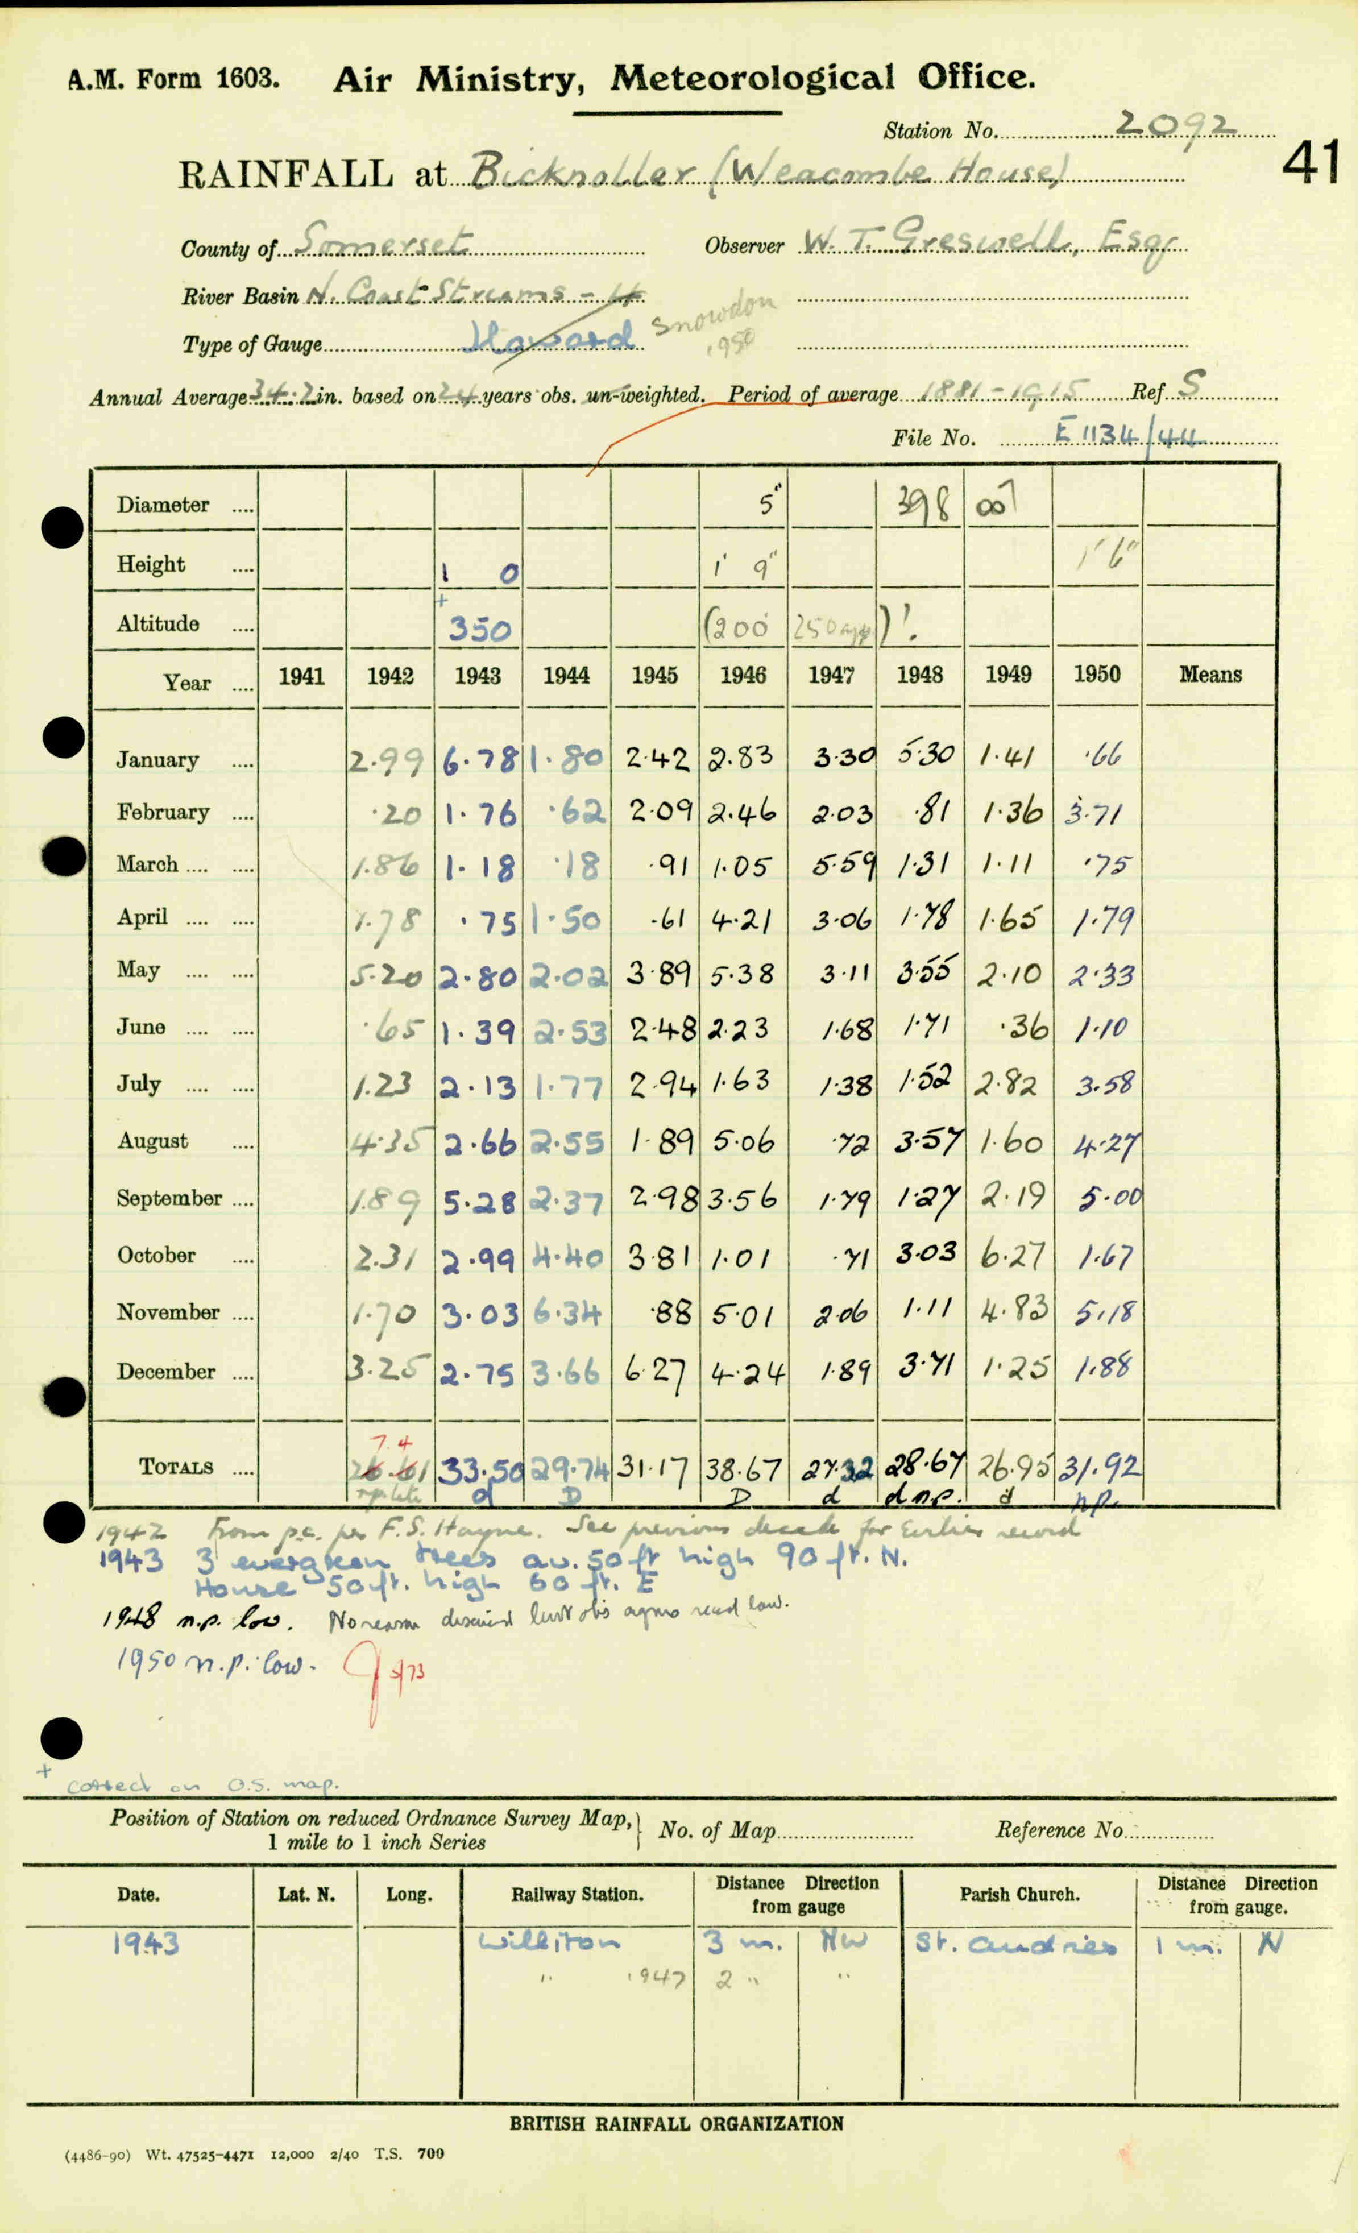 A.M. Form 1603. Air Ministry, Meteorological Office.
Station No. 2092
41
RAINFALL at Bicknoller (Weacombe House)
County of Somerset Observer W. T. Greswell, Esqr
River Basin N. Coast Streams - 4
Type of Gauge Howard Snowdon 1950
Annual Average 34.2 in. based on 24 years obs. un-weighted. Period of average 1881-1915 Ref S
File No. E 1134/44
Diameter .... 5" 398 007
Height .... 1 0 1' 9" 1' 6"
Altitude .... + 350 (200 250 )!
Year .... 1941 1942 1943 1944 1945 1946 1947 1948 1949 1950 Means
January .... 2.99 6.78 1.80 2.42 2.83 3.30 5.30 1.41 .66
February .... .20 1.76 .62 2.09 2.46 2.03 .81 1.36 3.71
March .... .... 1.86 1.18 .18 .91 1.05 5.59 1.31 1.11 .75
April .... .... 1.78 .75 1.50 .61 4.21 3.06 1.78 1.65 1.79
May .... .... 5.20 2.80 2.02 3.89 5.38 3.11 3.55 2.10 2.33
June .... .... .65 1.39 2.53 2.48 2.23 1.68 1.71 .36 1.10
July .... .... 1.23 2.13 1.77 2.94 1.63 1.38 1.52 2.82 3.58
August .... 4.35 2.66 2.55 1.89 5.06 .72 3.57 1.60 4.27
September .... 1.89 5.28 2.37 2.98 3.56 1.79 1.27 2.19 5.00
October .... 2.31 2.99 4.40 3.81 1.01 .71 3.03 6.27 1.67
November .... 1.70 3.03 6.34 .88 5.01 2.06 1.11 4.83 5.18
December .... 3.25 2.75 3.66 6.27 4.24 1.89 3.71 1.25 1.88
7.4
TOTALS .... 26.61 33.50 29.74 31.17 38.67 27.32 28.67 26.95 31.92
d D D d d n.p. d n.p.
1942 From p.c. per F.S. Hayne. See previous decade for Earlier record
1943 3 evergreen trees av. 50 ft high 90 ft. N.
House 50 ft. high 60 ft. E
1948 n.p. low. No reason but obs agrees read low.
1950 n.p. low. 5/73
+ corrected on O.S. map.
Position of Station on reduced Ordnance Survey Map, 1 mile to 1 inch Series } No. of Map Reference No.
Date. Lat. N. Long. Railway Station. Distance Direction from gauge Parish Church. Distance Direction from gauge.
1943 Williton 3 m. NW St. Audries 1 m. N
" 1947 2 " "
BRITISH RAINFALL ORGANIZATION
(4486-90) Wt. 47525-4471 12,000 2/40 T.S. 700